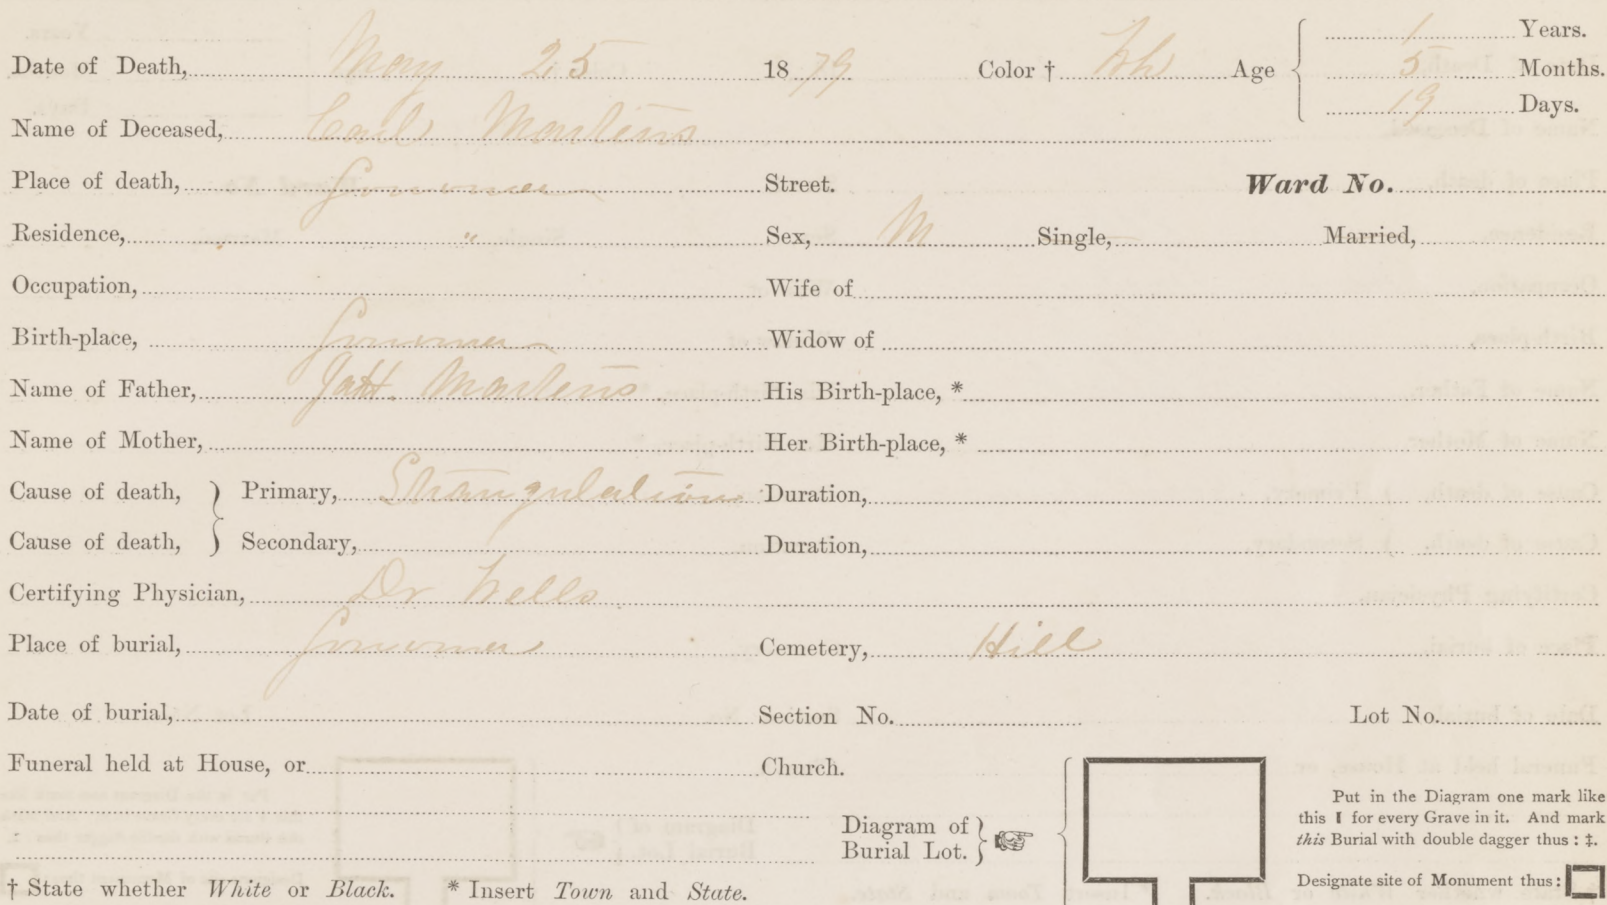 Date of Death, May 25 1879 Color † Wh Age 1 Years. 5 Months. 19 Days.
Name of Deceased, Carl Martens
Place of death, Street. Ward No.
Residence, " Sex, M Single, — Married,
Occupation, Wife of
Birth-place, Widow of
Name of Father, Martens His Birth-place, *
Name of Mother, Her Birth-place, *
Cause of death, } Primary, Strangulation Duration,
Cause of death, } Secondary, Duration,
Certifying Physician, Dr Wells
Place of burial, Cemetery, Hill
Date of burial, Section No. Lot No.
Funeral held at House, or Church.
Diagram of Burial Lot. }
Put in the Diagram one mark like
this I for every Grave in it. And mark
this Burial with double dagger thus : ‡.
Designate site of Monument thus :
† State whether White or Black. * Insert Town and State.